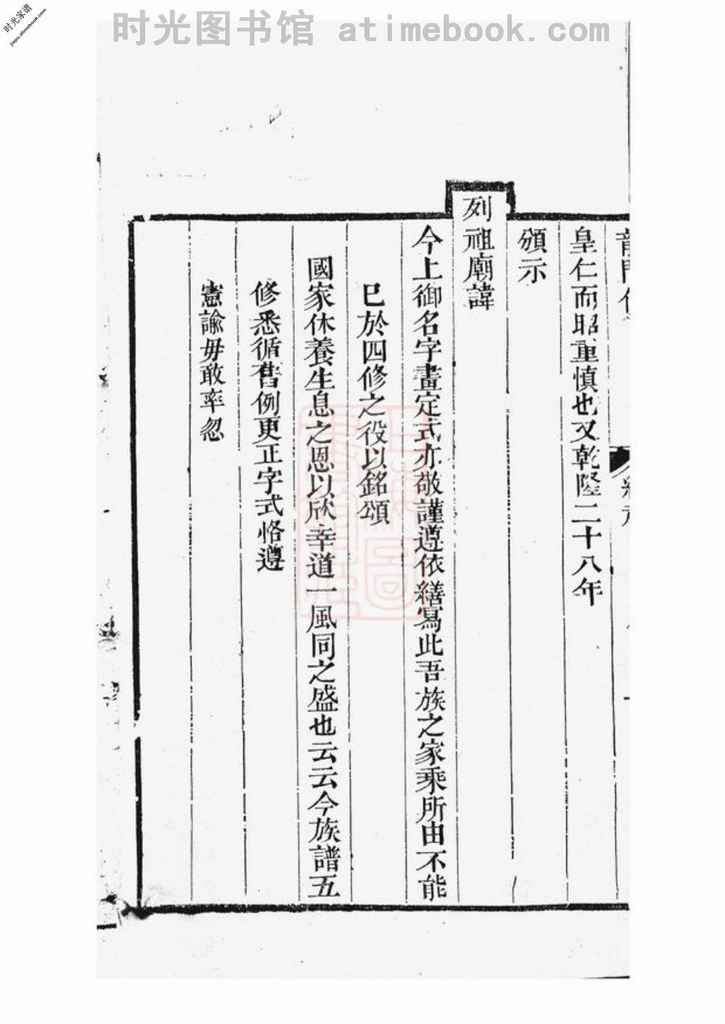 时光图书馆 atimebook.com
时光家谱
皇仁而昭重慎也又乾隆二十八年
頒示
列祖廟諱
今上御名字畫定式亦敬謹遵依繕寫此吾族之家乘所由不能
已於四修之役以銘頌
國家休養生息之恩以欣幸道一風同之盛也云云今族譜五
修悉循舊例更正字式恪遵
憲諭毋敢率忽